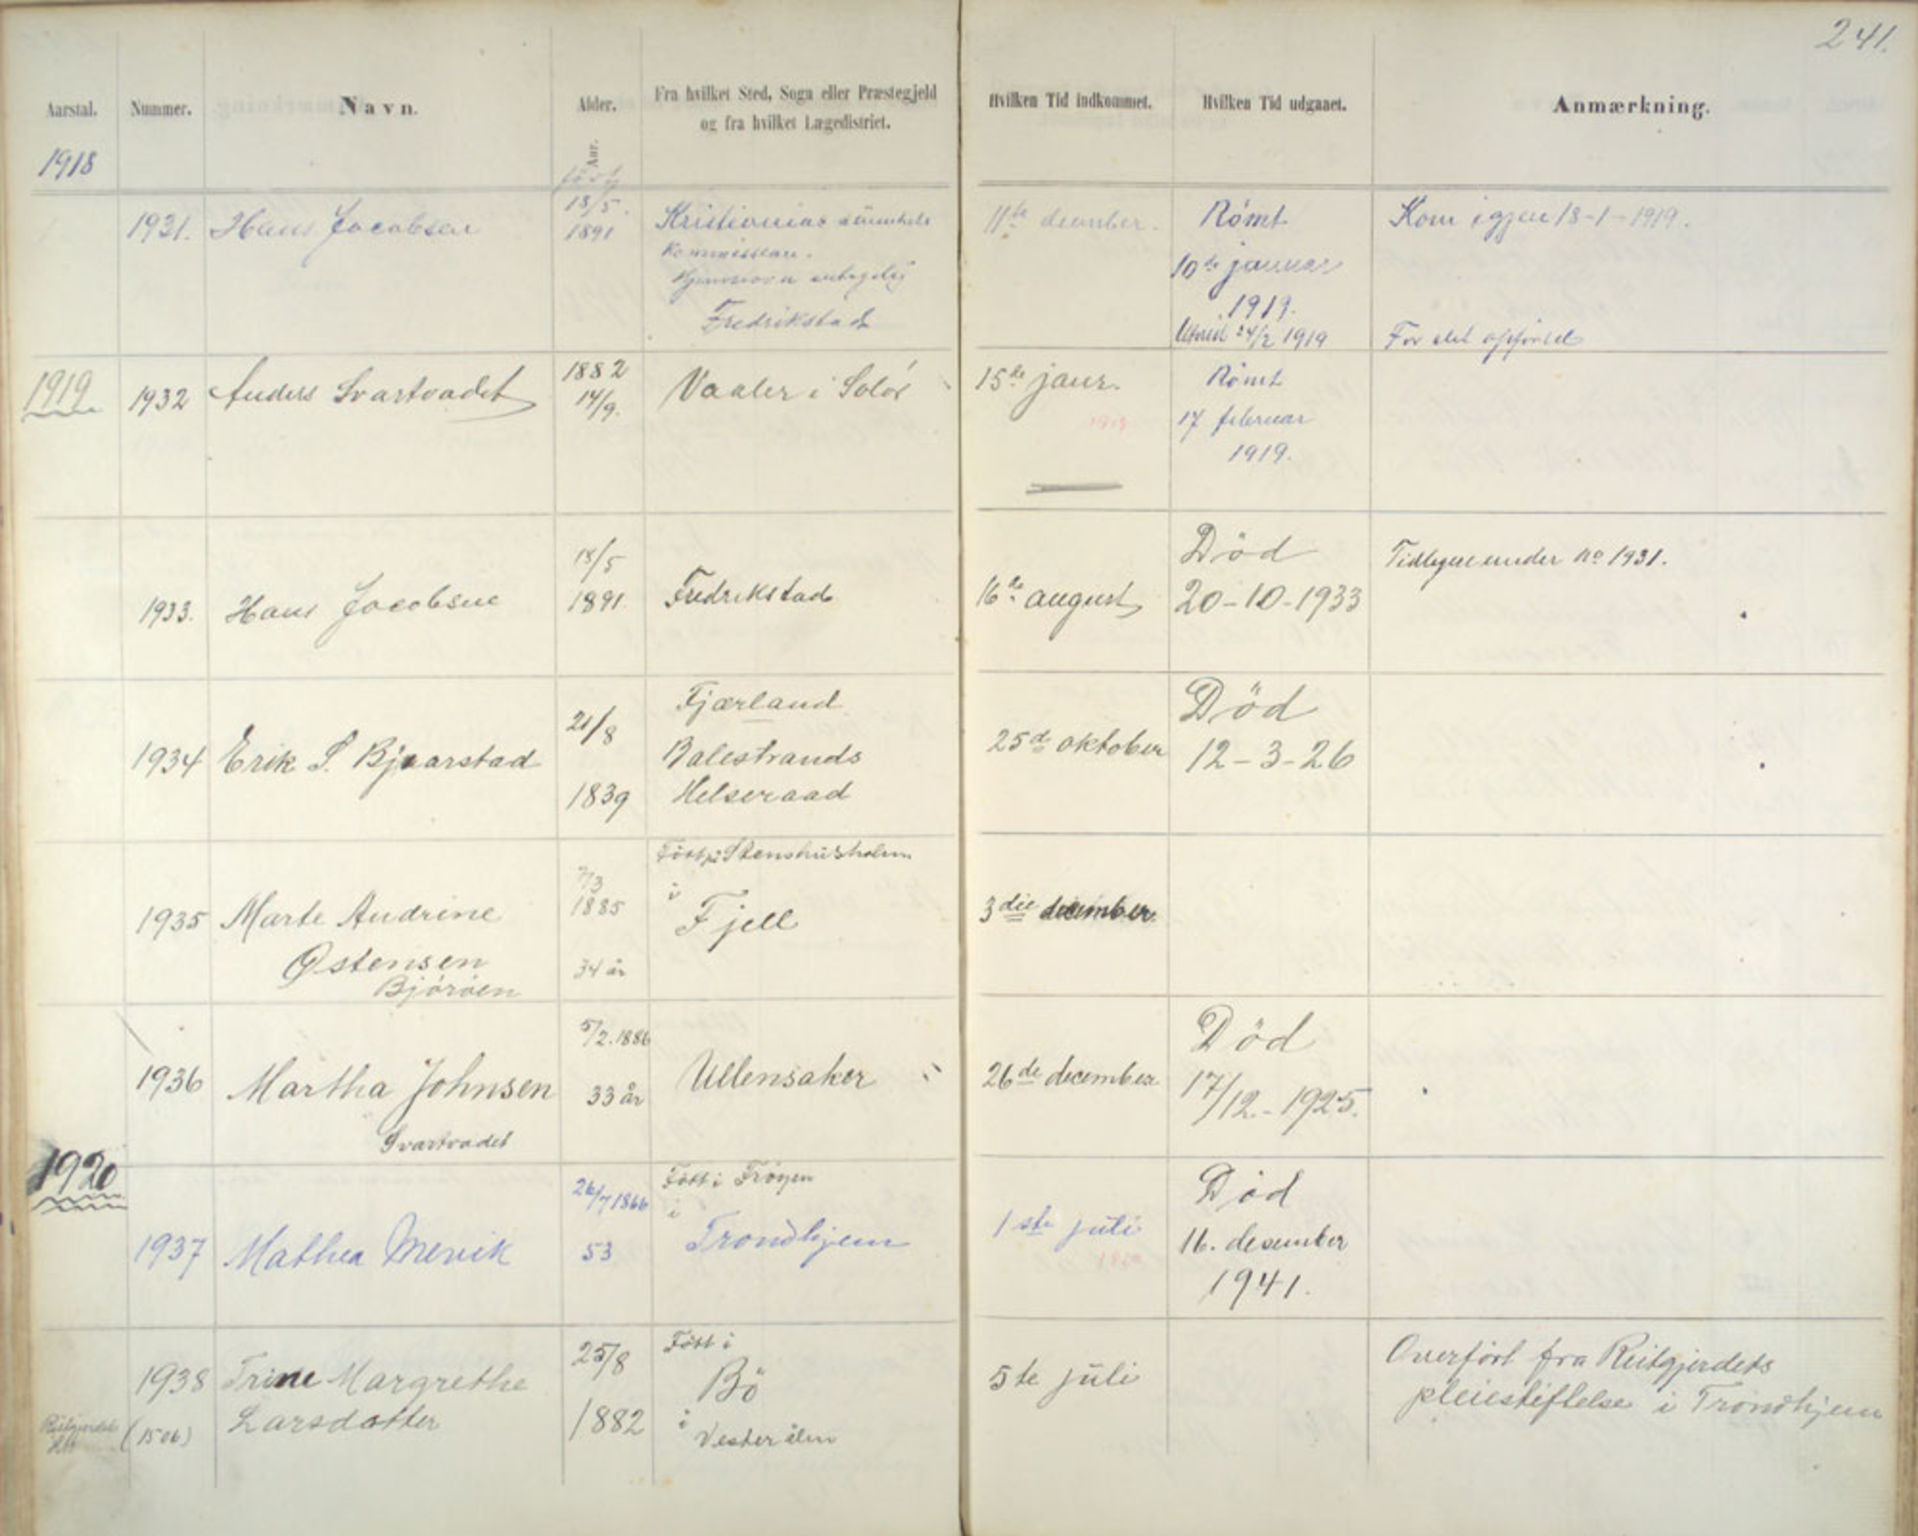 241.
Aarstal. Nummer. Navn. Alder. Fra hvilket Sted, Sogn eller Præstegjeld
og fra hvilket Lægedistrict.
Hvilken Tid indkommet. Hvilken Tid udgaaet. Anmærkning.
Aar.
1918
1931. Hans Jacobsen
18/5.
1891
Kristianias
Fredrikstad
11te december.
Rømt
10de januar
1919.
24/2 1919
Kom igjen 18-1-1919.
For slet opførsel
1919
1932 Anders Svartvadet
1882
14/9.
Vaaler i Solör
15de janr.
1919
Rømt
17 februar
1919.
1933. Hans Jacobsen
18/5
1891
Fredrikstad
16de august
Död
20-10-1933
Tidligere under No 1931.
1934 Erik S. Bjaarstad
21/8
1839
Fjærland
Balestrands
Helseraad
25de oktober
Död
12-3-26
1935 Marte Andrine
Østensen
Björöen
7/3
1885
34 år
Född på Stenshusholm
i
Fjell
3die december
1936 Martha Johnsen
Svartvadet
5/2.1886
33 år
Ullensaker
26de december
Död
17/12-1925.
1920
1937 Mathea Mevik
26/7 1866
53
Född i Fröyen
i
Trondhjem
1ste juli
1920
Död
16. desember
1941.
1938 Trine Margrethe
(1506) Larsdotter
25/8
1882
Född i
Bö
i
Vesterålen
5te juli
Overfört fra Reitgjerdets
pleiestiftelse i Trondhjem